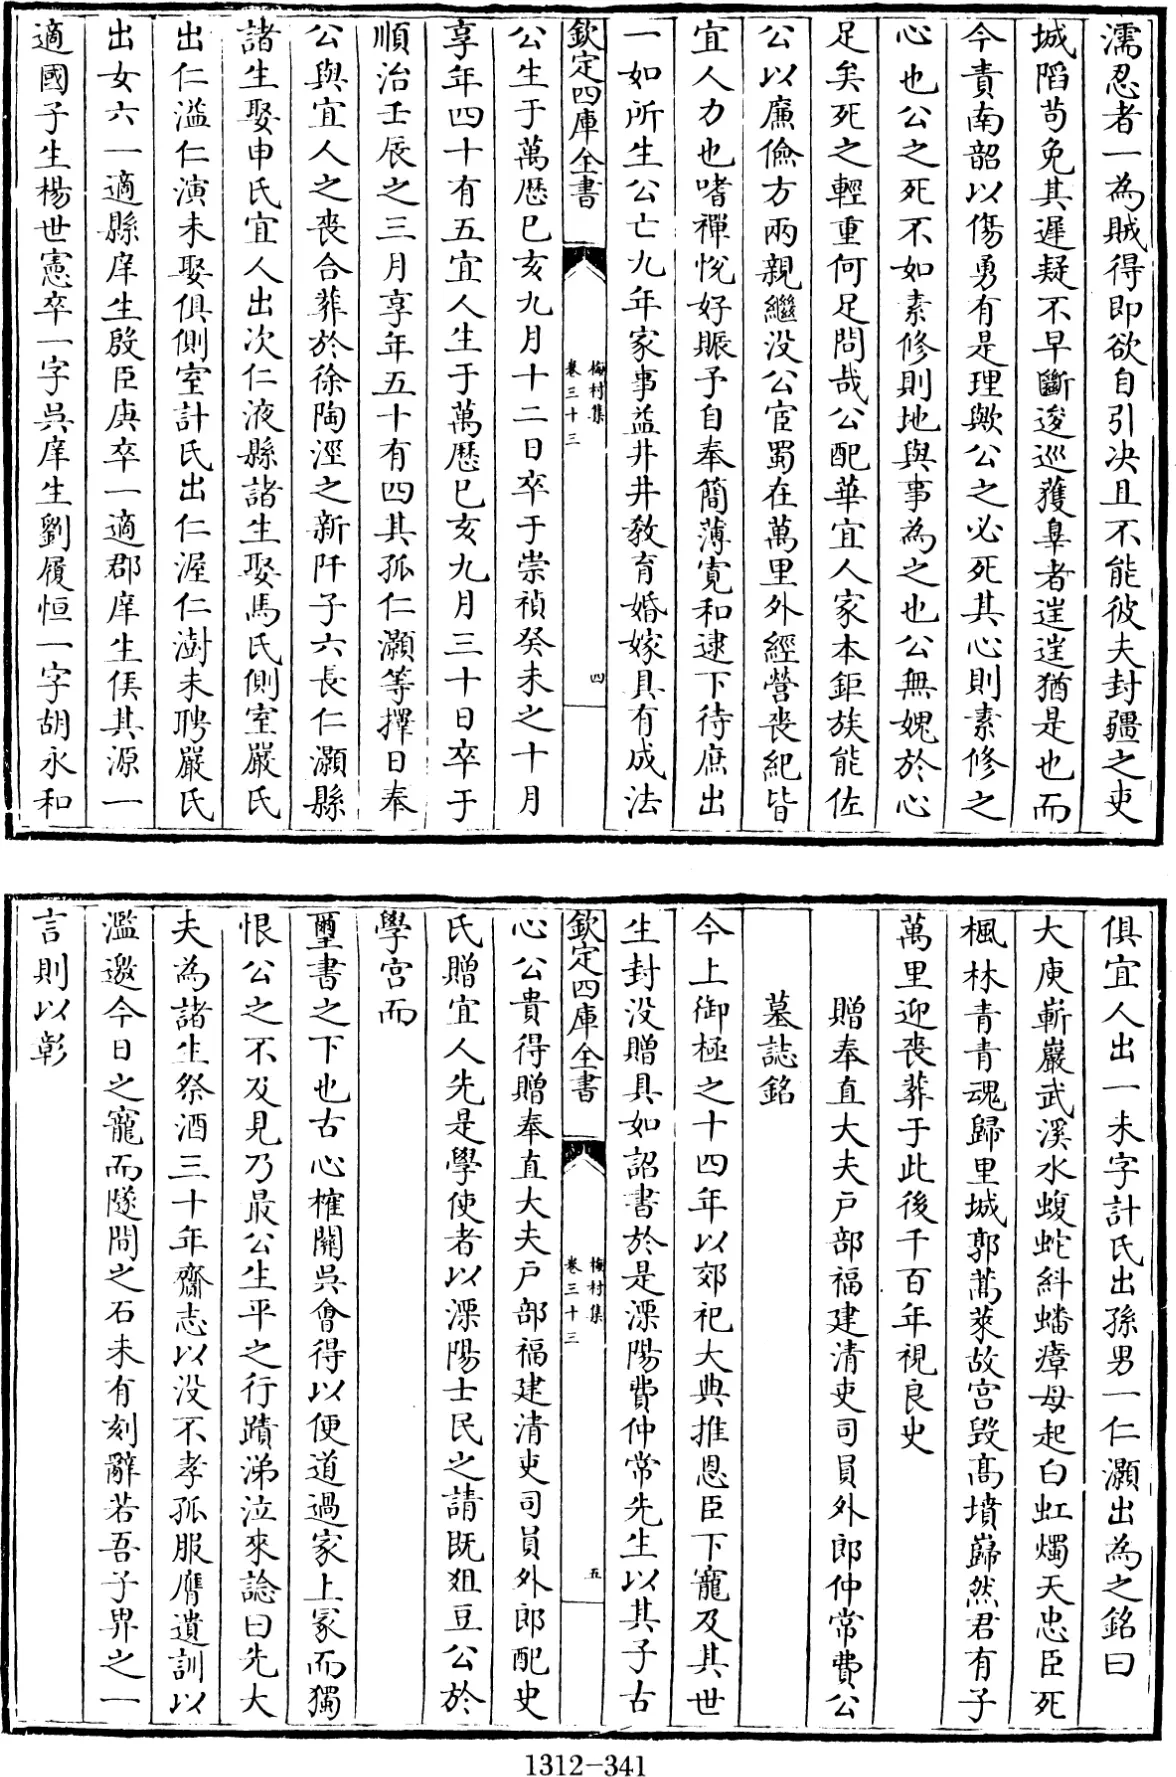 濡忍者一為賊得即欲自引決且不能彼夫封疆之吏
城陷苟免其遲疑不早斷逡巡獲辠者遑遑猶是也而
今責南韶以傷勇有是理歟公之必死其心則素修之
心也公之死不如素修則地與事為之也公無媿於心
足矣死之輕重何足問哉公配華宜人家本鉅族能佐
公以廉儉方兩親繼沒公宦蜀在萬里外經營喪紀皆
宜人力也嗜禪悅好賑予自奉簡薄寬和逮下待庶出
一如所生公亡九年家事益井井教育婚嫁具有成法
欽定四庫全書
梅村集
卷三十三
四
公生于萬歷己亥九月十二日卒于崇禎癸未之十月
享年四十有五宜人生于萬歷己亥九月三十日卒于
順治壬辰之三月享年五十有四其孤仁灝等擇日奉
公與宜人之喪合葬於徐陶涇之新阡子六長仁灝縣
諸生娶申氏宜人出次仁液縣諸生娶馬氏側室嚴氏
出仁溢仁演未娶俱側室計氏出仁渥仁澍未聘嚴氏
出女六一適縣庠生殷臣庚卒一適郡庠生侯其源一
適國子生楊世憲卒一字吳庠生劉履恒一字胡永和
俱宜人出一未字計氏出孫男一仁灝出為之銘曰
大庾嶄巖武溪水蝮蛇糾蟠瘴母起白虹燭天忠臣死
楓林青青魂歸里城郭蒿萊故宮毀高墳巋然君有子
萬里迎喪葬于此後千百年視良史
贈奉直大夫戶部福建清吏司員外郎仲常費公
墓誌銘
今上御極之十四年以郊祀大典推恩臣下寵及其世
生封沒贈具如詔書於是溧陽費仲常先生以其子古
欽定四庫全書
梅村集
卷三十三
五
心公貴得贈奉直大夫戶部福建清吏司員外郎配史
氏贈宜人先是學使者以溧陽士民之請既俎豆公於
學宮而
璽書之下也古心榷關吳會得以便道過家上冢而獨
恨公之不及見乃最公生平之行蹟涕泣來諗曰先大
夫為諸生祭酒三十年齎志以沒不孝孤服膺遺訓以
濫邀今日之寵而隧間之石未有刻辭若吾子畀之一
言則以彰
1312-341